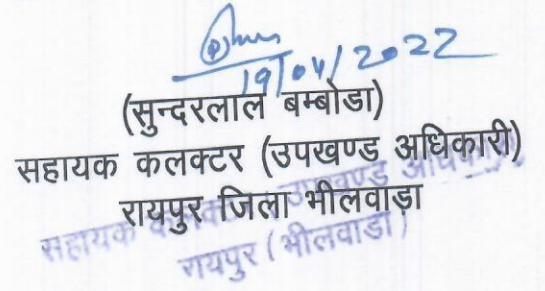 19/04/2022
(सुन्दरलाल बम्बोडा)
सहायक कलक्टर (उपखण्ड अधिकारी)
रायपुर जिला भीलवाड़ा
सहायक कलक्टर उपखण्ड अधिकारी
रायपुर (भीलवाडा)